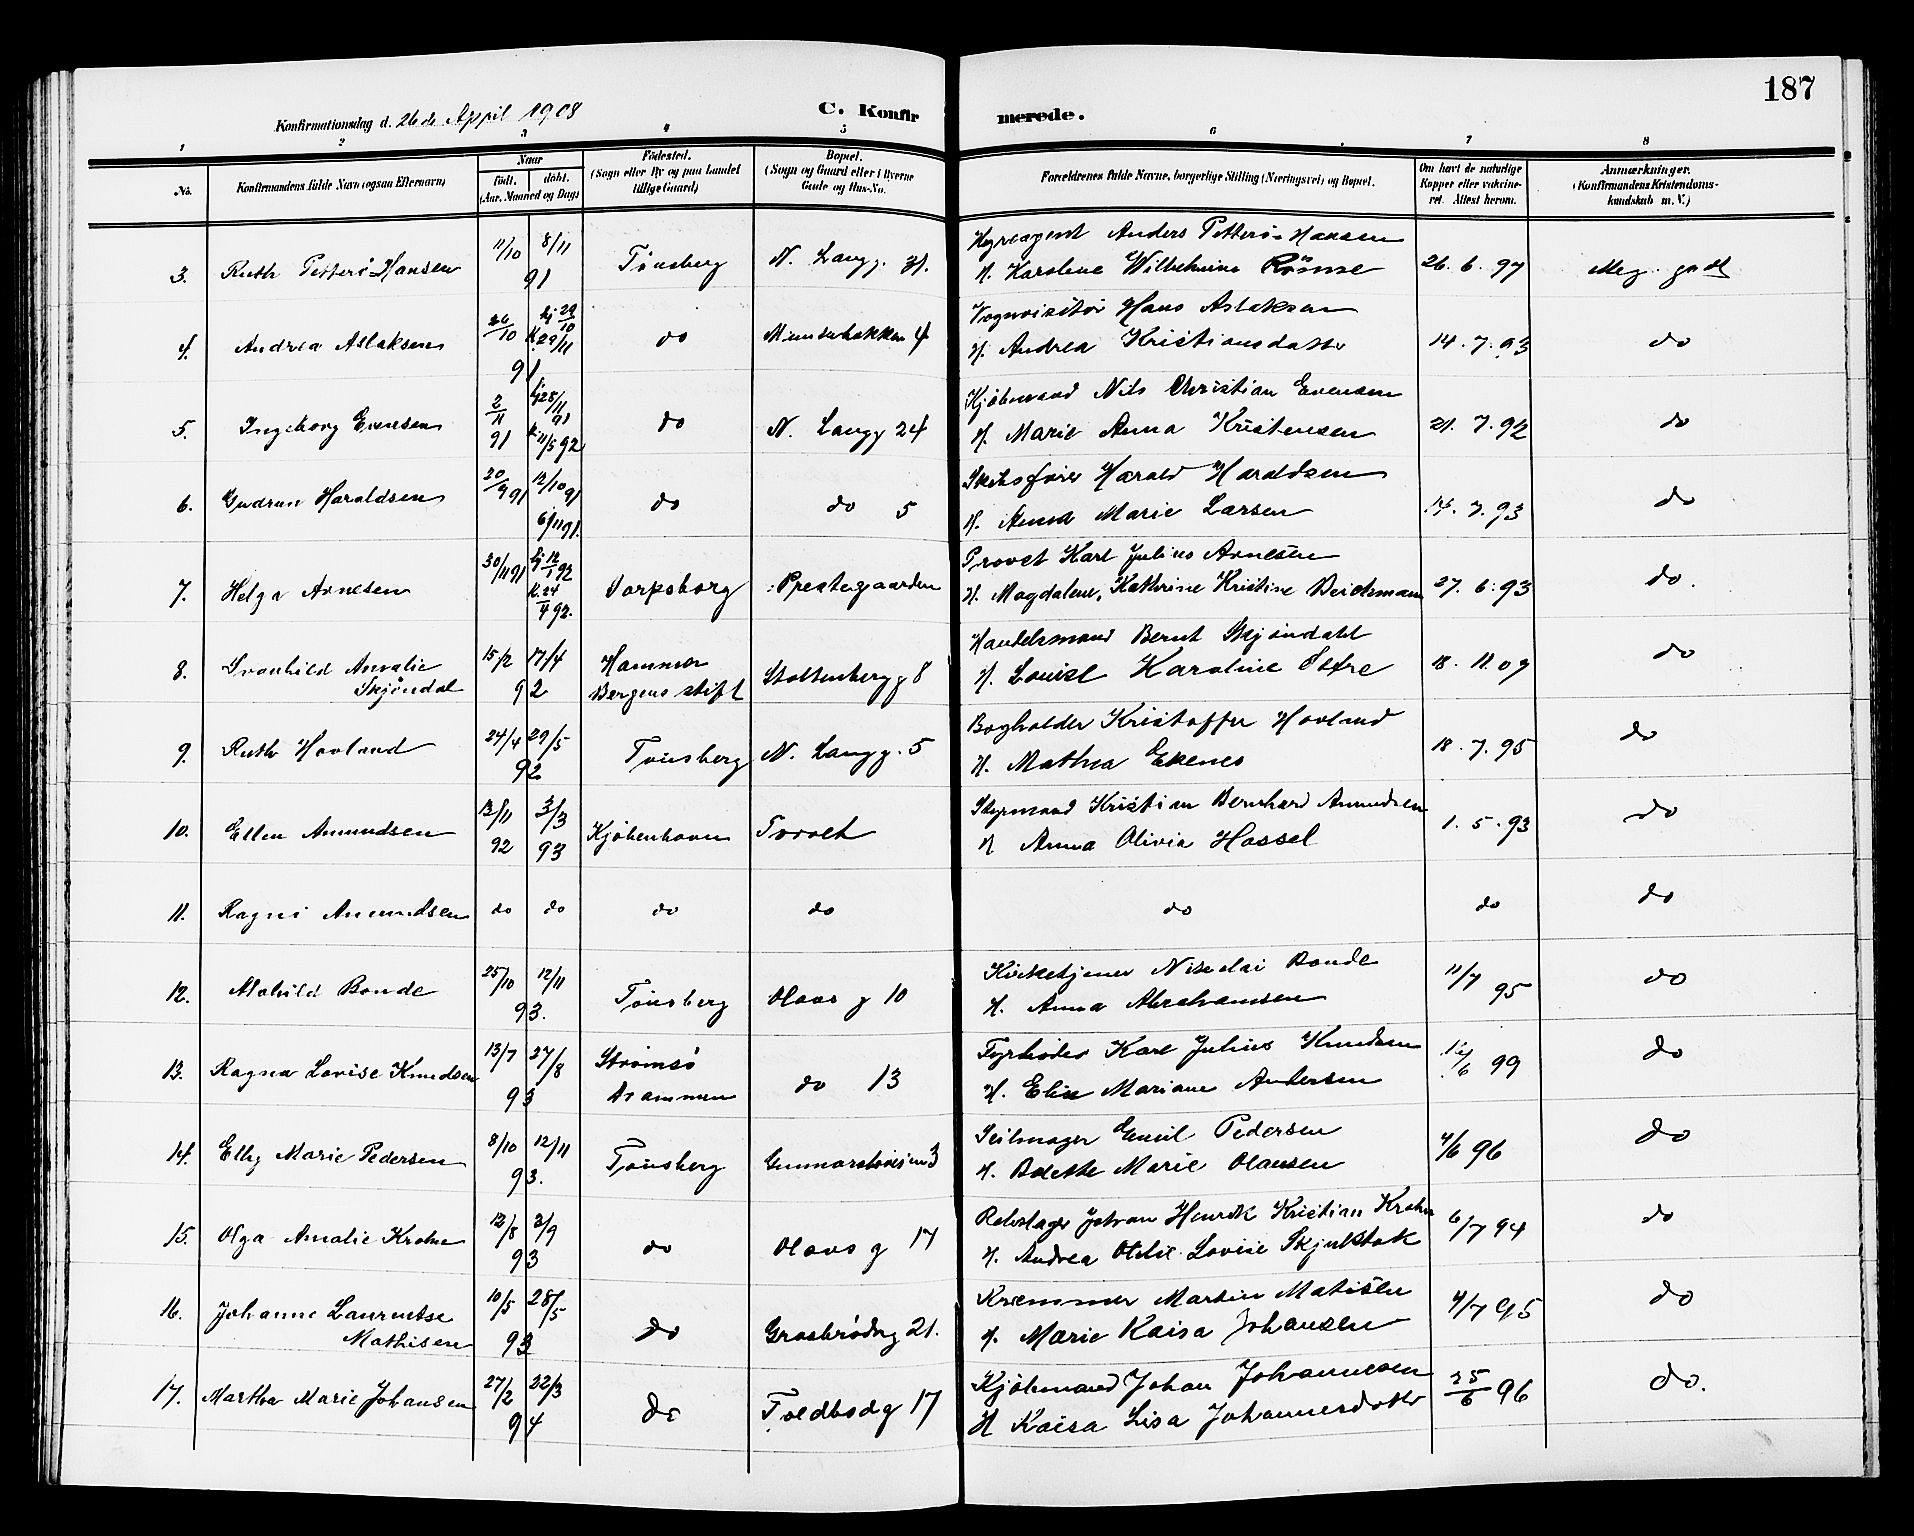 187
Konfirmationsdag d. 26de April 1908
C. Konfirmerede.
1 2 3 4 5 6 7 8
No. Konfirmandens fulde Navn (ogsaa Efternavn) Naar født. døbt. (Aar, Maaned og Dag) Fødested. (Sogn eller By og paa Landet tillige Gaard) Bopæl. (Sogn og Gaard eller i Byerne Gade og Hus-No. Forældrenes fulde Navne, borgerlige Stilling (Næringsvei) og Bopæl. Om havt de naturlige Kopper eller vakcineret. Attest herom. Anmærkninger. (Konfirmandens Kristendomskundskab m. V.)
3. Ruth Petters Hansen 11/10 8/11 91 Tönsberg N. Langg. 31. Hyreagent Anders Petters-Hansen
H. Karolene Wilhelmine Rønne 26. 6. 97 Meg. godt
4. Andrea Aslaksen 26/10 hj 29/10 K. 29/11 91 do 4 Vognvisitør Hans Aslaksen
H. Andrea Kristiansdatter 14. 7. 93 do
5. Ingeborg Evensen 2/11 91 hj 28/11 91 K. 11/5 92 do N. Langg 24 Kjøbmand Nils Christian Evensen
H. Marie Anna Kristensen 21. 7. 92 do
6. Gudrun Haraldsen 20/9 91 12/10 91 6/11 91. do do 5 Skibsfører Harald Haraldsen
H. Anna Marie Larsen 14. 7. 93 do
7. Helga Arnesen 30/11 91 hj 12/1 92 K. 24/4 92. Sarpsborg Prestegaarden Provst Karl Julius Arnesen
H. Magdalene, Kathrine Kristine Beichmann 27. 6. 93 do.
8. Svanhild Amalie
Skjöndal 15/2 17/4 92 Hammer
Bergens stift Stoltenbergg 8 Handelsmand Bernt Skjöndahl
H. Louise Karoline Østre 18. 11. 07 do
9. Ruth Hovland 24/4 29/5 92 Tönsberg N. Langg. 5 Bogholder Kristoffer Hovland
H. Mathea Ekenes 18. 7. 95 do
10. Ellen Amundsen 13/11 92 3/3 93 Kjöbenhavn Torvet Styrmand Kristian Bernhard Amundsen
H Anna Olivia Hassel 1. 5. 93 do
11. Ragni Amundsen do do do do do do do
12. Alvhild Bonde 25/10 12/11 93. Tönsberg Olavs g 10 Kirketjener Nikolai Bonde
H. Anna Abrahamsen 11/7 95 do
13. Ragna Lovise Knudsen 13/7 27/8 93 Strømsö
Drammen do 13 Fyrbøder Karl Julius Knudsen
H. Elise Mariane Andersen 14/6 99 do
14. Elly Marie Pedersen 8/10 12/11 93. Tönsberg 3 Seilmager Emil Pedersen
H. Bolette Marie Olausen 4/6 96 do
15. Olga Amalie Krohn 12/8 3/9 93 do Olavs g 17 Rebslager Johan Henrik Kristian Krohn
H. Andrea Otilie Lovise 6/7 94 do
16. Johanne Laurentse
Mathisen 10/5 28/5 93 do Grasbrödrg 21. Kræmmer Martin Matisen
H. Marie Kaisa Johansen 4/7 95 do
17. Martha Marie Johansen 27/2 22/3 94 do Toldbodg 17 Kjöbmand Johan Johannesen
H Kaisa Lisa Johannesdotter 25/6 96 do.